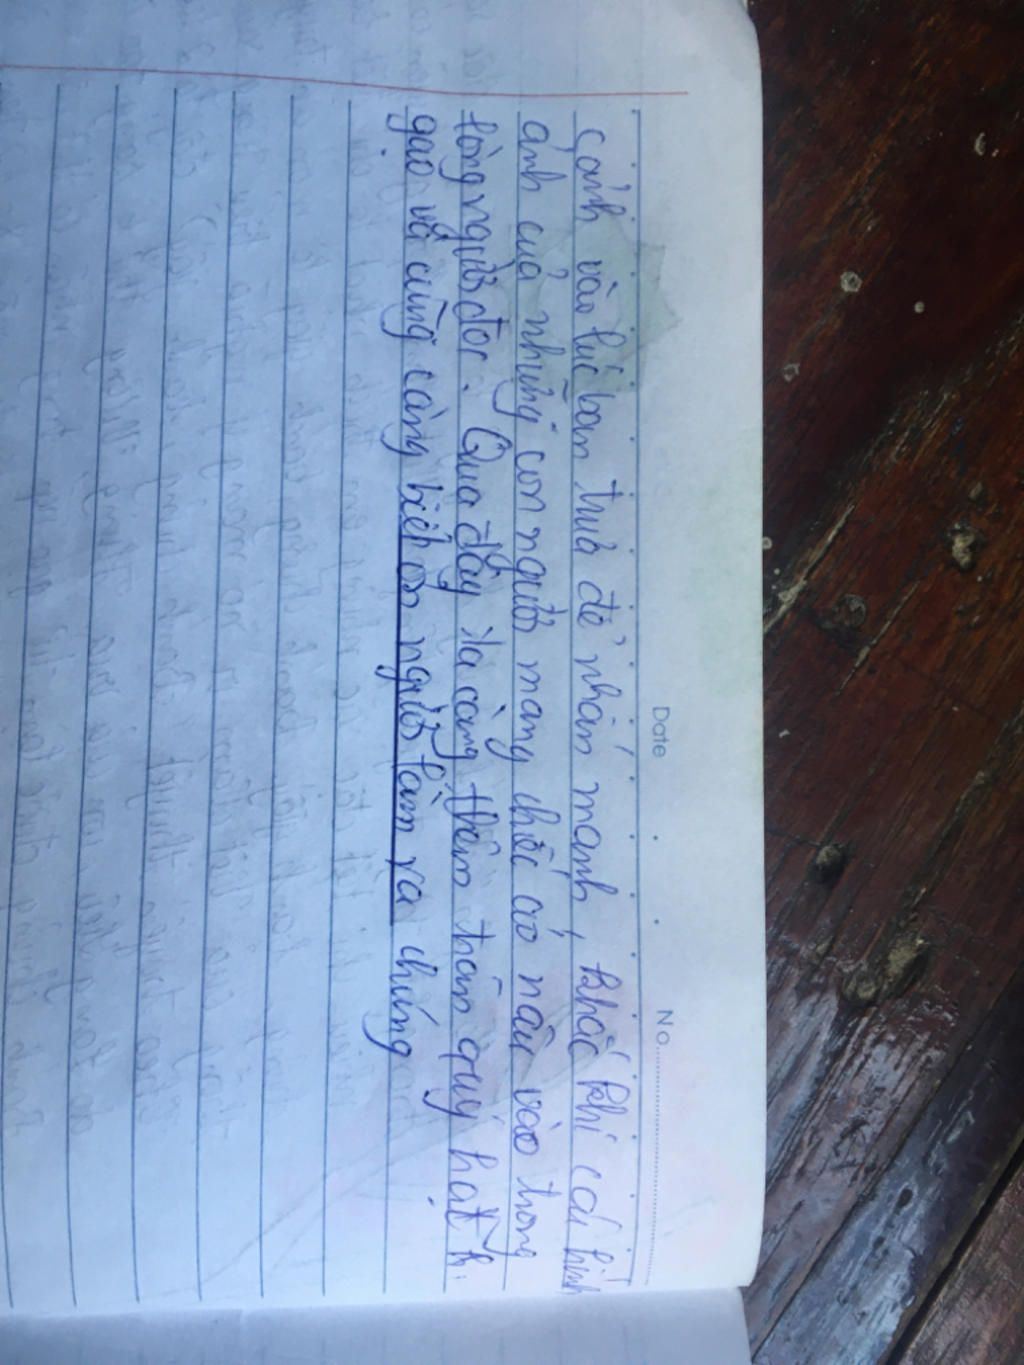 Date No.
cảnh vào lúc ban trưa để nhấn mạnh, khắc khi cái hình
ảnh của những con người mang chiếc áo nâu vào trong
lòng người đọc. Qua đây ta càng thêm trân quý hạt
gạo và cũng càng biết ơn người làm ra chúng